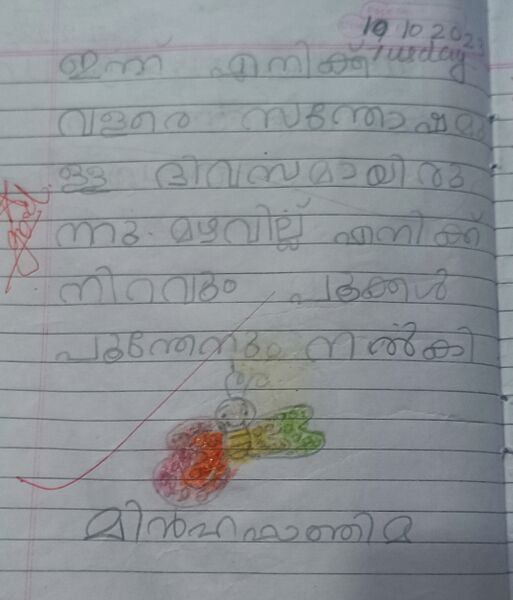 19 10 2023
Tusday
ഇന്ന് എനിക്ക്
വളരെ സന്തോഷമു
ള്ള ദിവസമായിരു
ന്നു. മഴവില്ല് എനിക്ക്
നിറവും പൂക്കൾ
പൂന്തേനും നൽകി
മിൻഹഫാത്തിമ